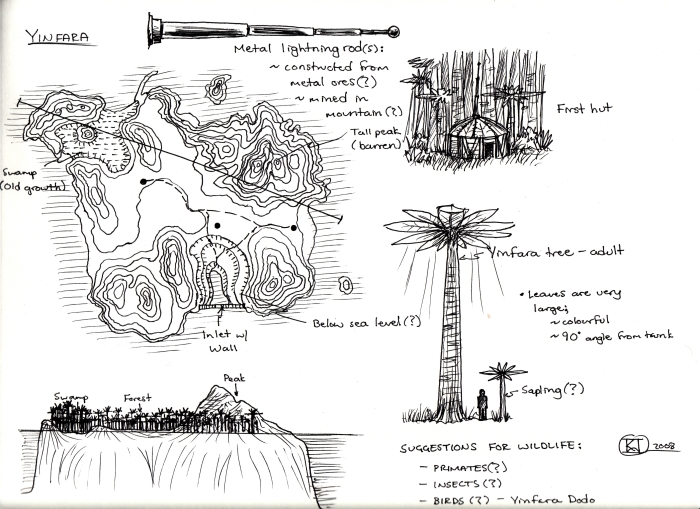 YINFARA
Metal lightning rod(s):
~ constructed from
metal ores(?)
~ mined in
mountain(?)
First hut
Tall peak
(barren)
Swamp
(old growth)
Yinfara tree - adult
• Leaves are very
large;
~ colourful
~ 90° angle from trunk
Below sea level(?)
Inlet w/
Wall
Peak
Swamp
Forest
Sapling(?)
SUGGESTIONS FOR WILDLIFE:
- PRIMATES(?)
- INSECTS(?)
- BIRDS(?) - Yinfara Dodo
2008